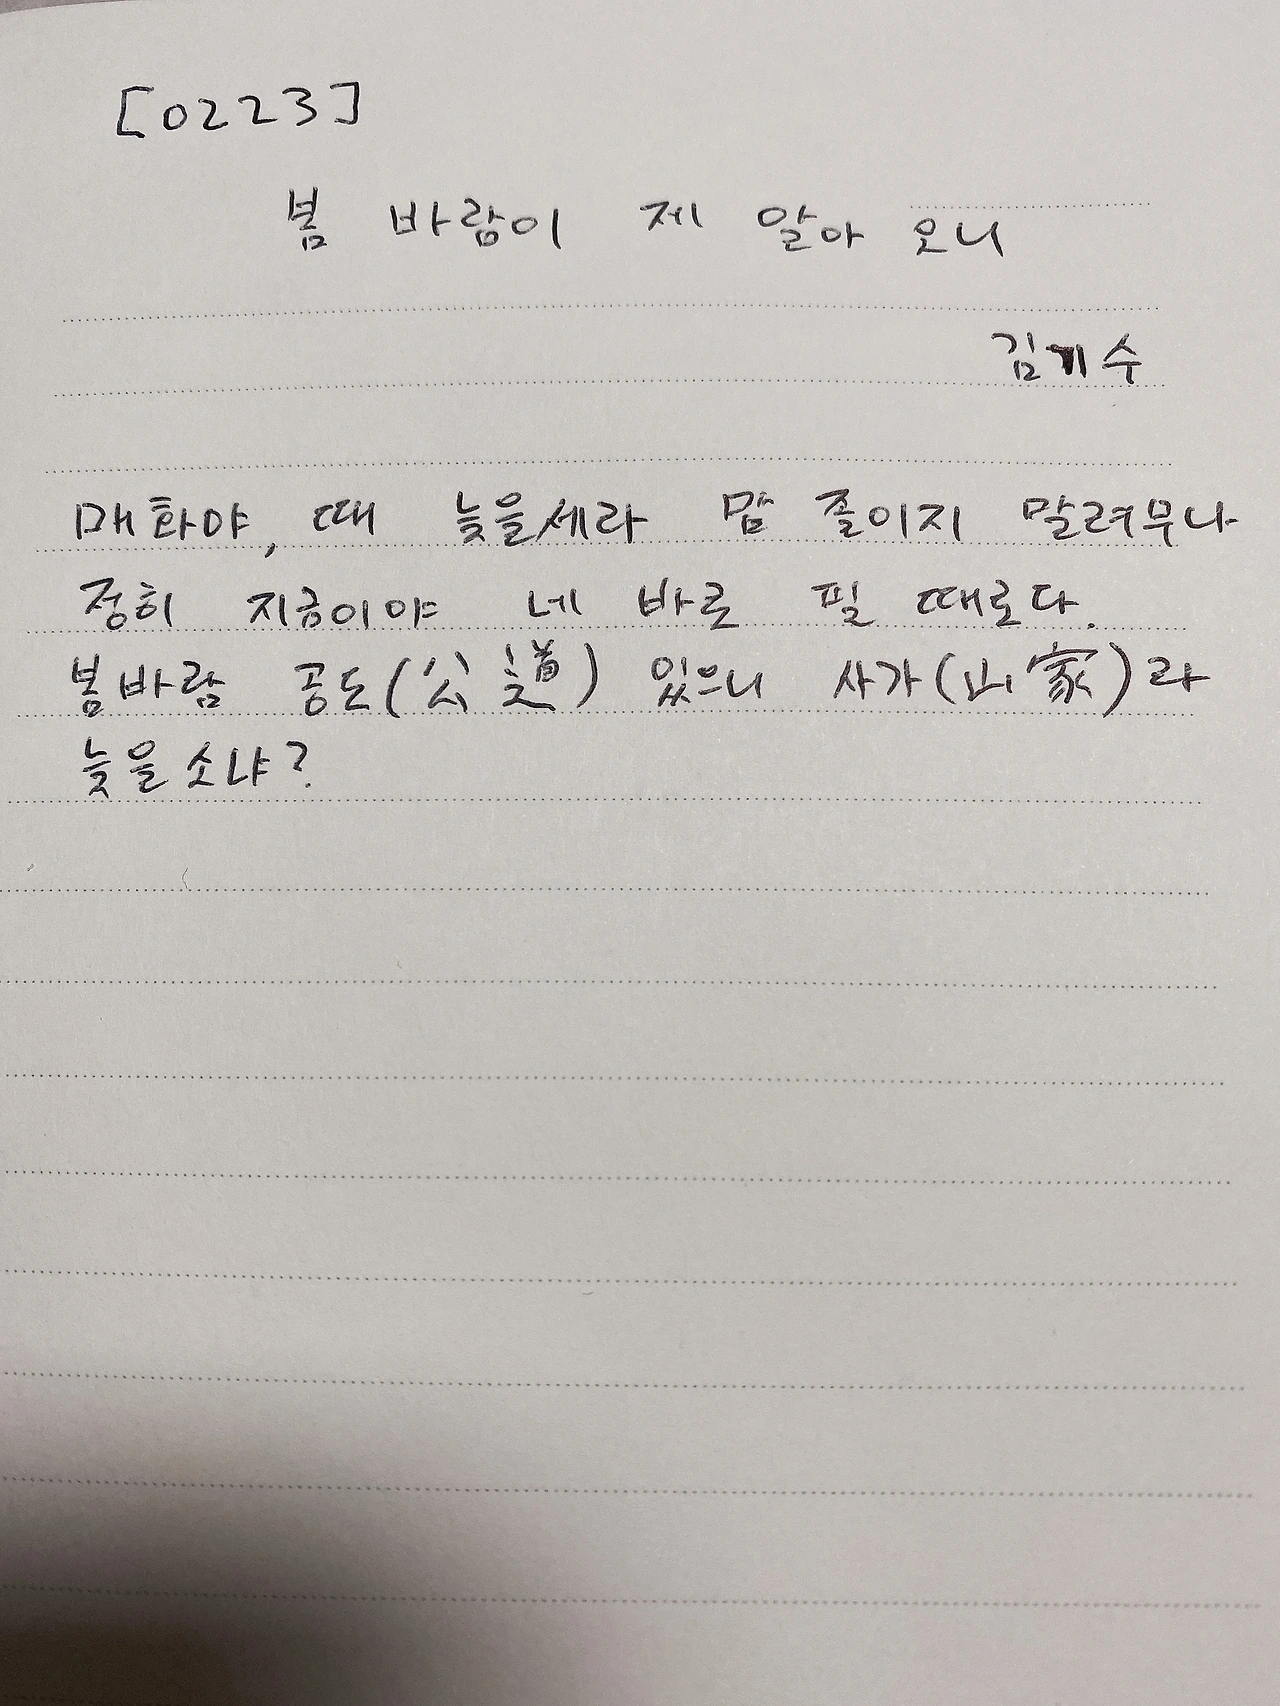 [0223]
봄 바람이 제 알아 오니
김기수
매화야, 때 늦을세라 맘 졸이지 말려무나
정히 지금이야 네 바로 필 때로다.
봄바람 공도(公道) 있으니 사가(山家)라
늦을소냐?